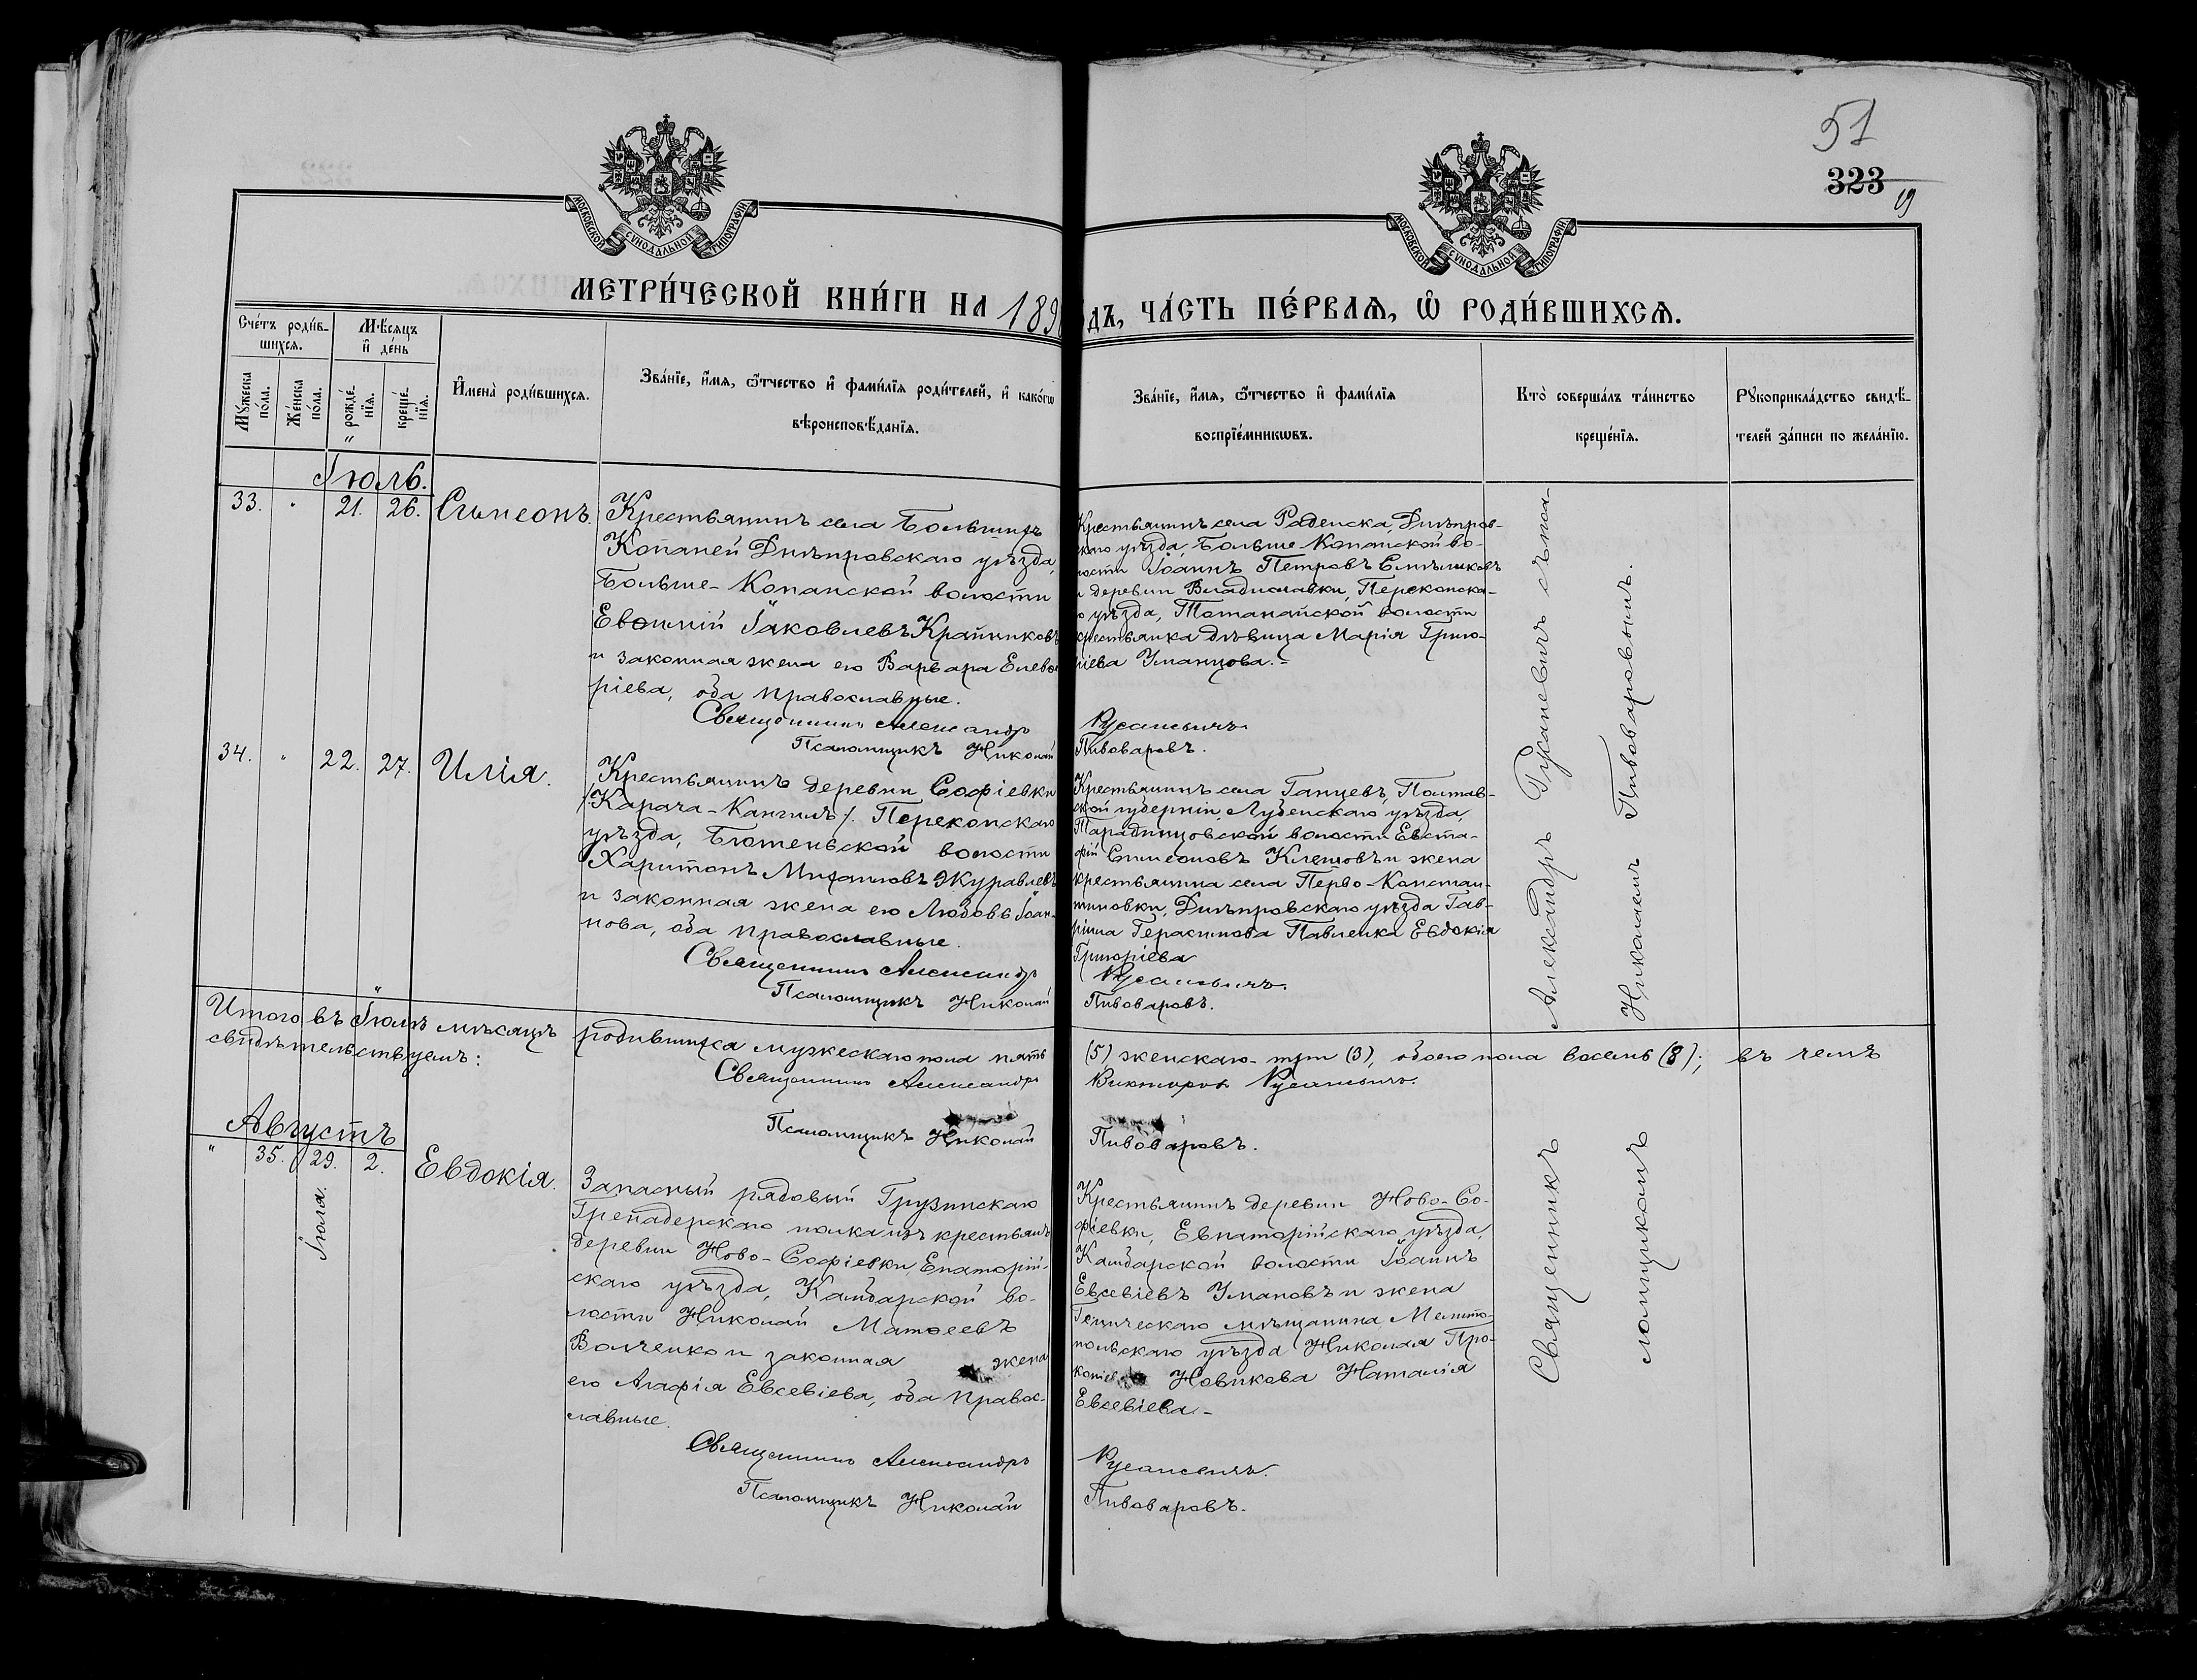 51
323
19
МОСКОВСКОЙ СѴНОДАЛЬНОЙ ТИПОГРАФІИ
МОСКОВСКОЙ СѴНОДАЛЬНОЙ ТИПОГРАФІИ
МЕТРИ́ЧЕСКОЙ КНИ́ГИ НА 189
дъ, ЧА́СТЬ ПЕ́РВАѦ, Ѡ҆ РОДИ́ВШИХСѦ.
Сче́тъ роди́в-
шихсѧ.
Мѣ́сяцъ
и҆ де́нь
Мꙋ́жеска
по́ла.
Же́нска
по́ла.
рожде́-
нїѧ.
креще́-
нїѧ.
И҆мена̀ роди́вшихсѧ.
Зва́нїе, и҆́мѧ, ѻ҆́тчество и҆ фами́лїѧ роди́телей, и҆ како́гѡ
вѣроисповѣ́данїѧ.
Зва́нїе, и҆́мѧ, ѻ҆́тчество и҆ фами́лїѧ
воспрїе́мникѡвъ.
Кто̀ соверша́лъ та́инство
креще́нїѧ.
Рꙋкоприкла́дство свидѣ́-
телей за́писи по жела́нїю.
Іюль.
33. " 21. 26. Симеонъ.
Крестьянинъ села Большихъ
Копаней Днѣпровскаго уѣзда,
Больше-Копанской волости
Евѳимій Іаковлевъ Крайниковъ
и законная жена его Варвара Елевѳе
ріева, оба православные.
Священникъ Александръ
Псаломщикъ Николай
Крестьянинъ села Раденска, Днѣпров-
скаго уѣзда, Больше-Копанской во-
лости Іоаннъ Петровъ Смѣликовъ
и деревни Владиславки, Перекопска-
о уѣзда, Тотанайской волости
крестьянка дѣвица Марія Григо-
ріева Уманцова.-
Русаневичъ
Пивоваровъ.
34. " 22. 27. Илія.
Крестьянинъ деревни Софіевки
/Карача-Кангилъ/. Перекопскаго
уѣзда, Бютеньской волости
Харитонъ Михаиловъ Журавлевъ
и законная жена его Любовь Іоан-
нова, оба православные.
Священникъ Александръ
Псаломщикъ Николай
Крестьянинъ села Ганцевъ, Полтав-
ской губерніи, Лубенскаго уѣзда,
Тарадинцовской волости Евста-
фій Симеоновъ Клецовъ и жена
крестьянина села Перво-Констан-
тиновки, Днѣпровскаго уѣзда Гав-
ріила Герасимова Павленка Евдокія
Григоріева
Русаневичъ.
Пивоваровъ.
Александръ Русаневичъ съ пса-
Николаемъ Пивоваровымъ.
Итого въ Іюлѣ мѣсяцѣ родившихся мужескаго пола пять (5) женскаго-три (3), обоего пола восемь (8); въ чемъ
свидѣтельствуемъ:
Священникъ Александръ
Викторовъ Русаневичъ.
Псаломщикъ Николай
Пивоваровъ.
Августъ
" 35. 29. 2. Евдокія.
Іюля.
Запасный рядовый Грузинскаго
Гренадерскаго полка изъ крестьянъ
деревни Ново-Софіевки, Епаторій-
скаго уѣзда, Камбарской во-
лости Николай Матѳеевъ
Волченко и законная жена
его Агафія Евсевіева, оба правос-
лавные.
Священникъ Александръ
Псаломщикъ Николай
Крестьянинъ деревни Ново-Со-
фіевки, Евпаторійскаго уѣзда,
Камбарской волости Іоаннъ
Евсевіевъ Умановъ и жена
Геническаго мѣщанина Мелито-
польскаго уѣзда Николая Про-
копіев Новикова Наталія
Евсевіева-
Русаневичъ.
Пивоваровъ.
Священникъ
ломщикомъ